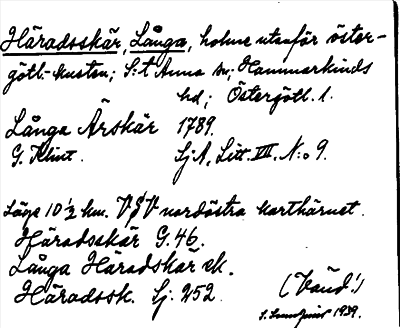 Häradsskär, Långa, holme utanför öster-
götl.-kusten; S:t Anna sn; Hammarkinds
hd; Östergötl. l.
Långa Ärskär 1789.
G. Klint. SjA, Litt. VII, N:o 9.
Läge 10 1/2 km. VSV nordöstra karthörnet.
Häradsskär G. 46.
Långa Häradskär ek.
Häradssk. Sj. 252
(Vänd!)
1939.